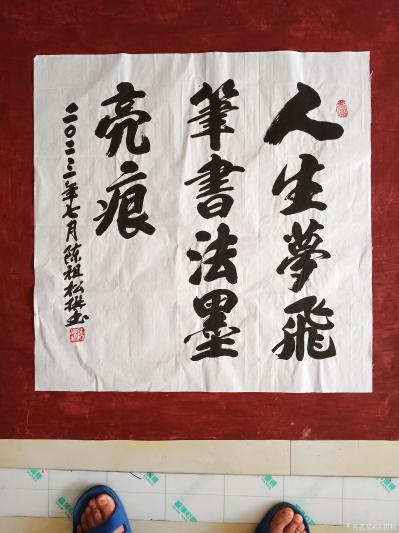 人生夢飛
筆書法墨
亮痕
二〇二三年七月陈祖松拱书